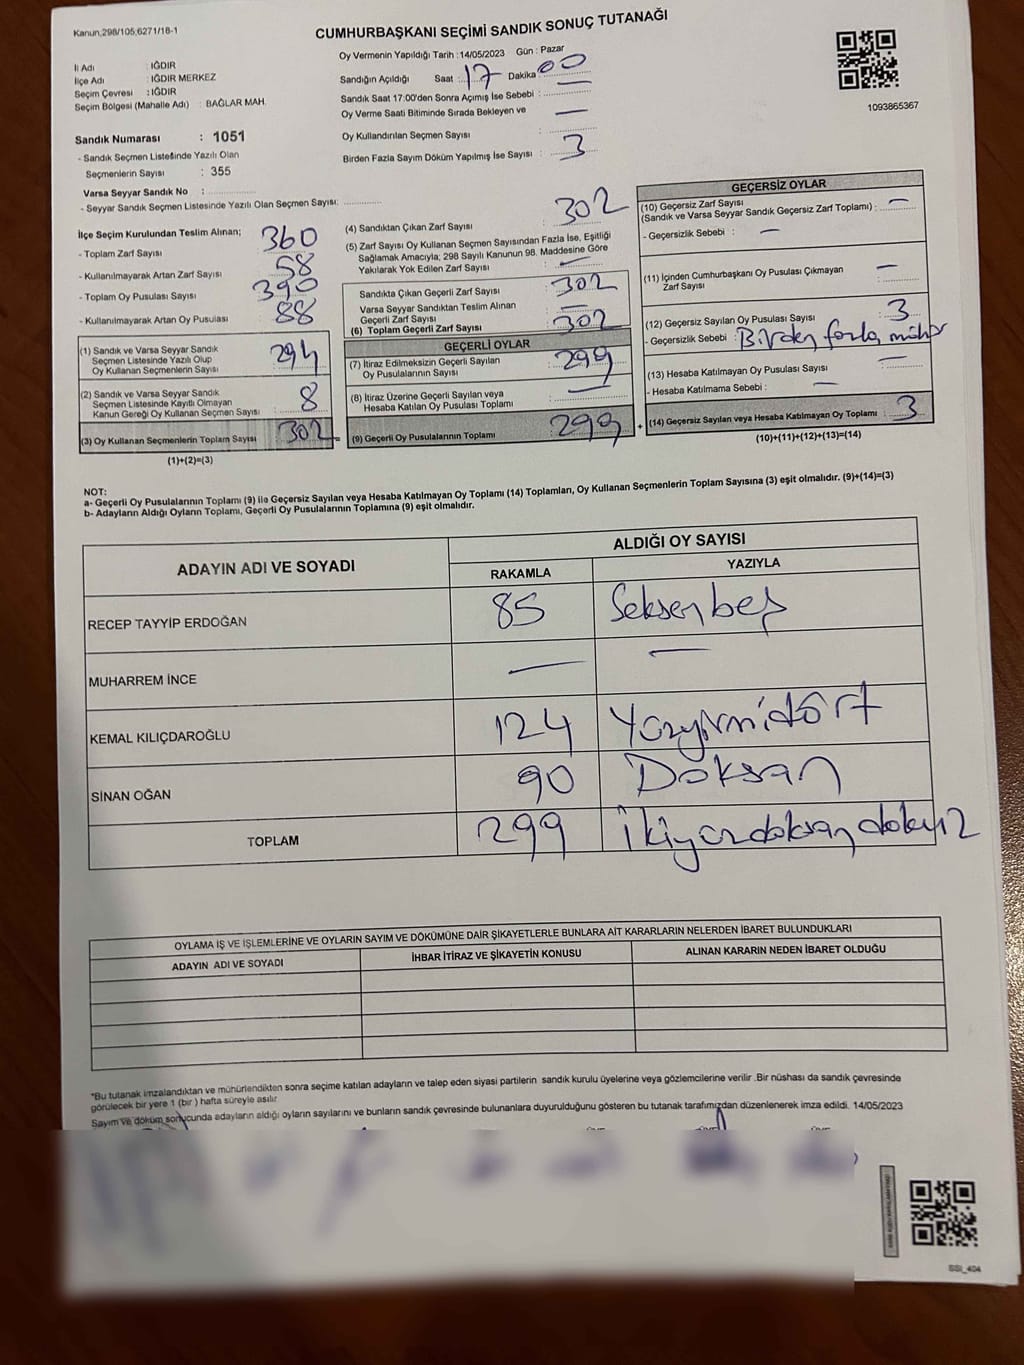 Kanun,298/105,6271/18-1
CUMHURBAŞKANI SEÇİMİ SANDIK SONUÇ TUTANAĞI
İl Adı : IĞDIR
İlçe Adı : IĞDIR MERKEZ
Seçim Çevresi : IĞDIR
Seçim Bölgesi (Mahalle Adı) : BAĞLAR MAH.
Sandık Numarası : 1051
- Sandık Seçmen Listesinde Yazılı Olan
Seçmenlerin Sayısı : 355
Varsa Seyyar Sandık No :
- Seyyar Sandık Seçmen Listesinde Yazılı Olan Seçmen Sayısı:
Oy Vermenin Yapıldığı Tarih :14/05/2023 Gün : Pazar
Sandığın Açıldığı Saat : 17 Dakika : 00
Sandık Saat 17:00'den Sonra Açımış İse Sebebi : —
Oy Verme Saati Bitiminde Sırada Bekleyen ve
Oy Kullandırılan Seçmen Sayısı : —
Birden Fazla Sayım Döküm Yapılmış İse Sayısı : 3
1093865367
İlçe Seçim Kurulundan Teslim Alınan;
- Toplam Zarf Sayısı : 360
- Kullanılmayarak Artan Zarf Sayısı : 58
- Toplam Oy Pusulası Sayısı : 390
- Kullanılmayarak Artan Oy Pusulası : 88
(1) Sandık ve Varsa Seyyar Sandık
Seçmen Listesinde Yazılı Olup
Oy Kullanan Seçmenlerin Sayısı : 294
(2) Sandık ve Varsa Seyyar Sandık
Seçmen Listesinde Kayıtlı Olmayan
Kanun Gereği Oy Kullanan Seçmen Sayısı : 8
(3) Oy Kullanan Seçmenlerin Toplam Sayısı : 302
(1)+(2)=(3)
(4) Sandıktan Çıkan Zarf Sayısı : 302
(5) Zarf Sayısı Oy Kullanan Seçmen Sayısından Fazla İse, Eşitliği
Sağlamak Amacıyla; 298 Sayılı Kanunun 98. Maddesine Göre
Yakılarak Yok Edilen Zarf Sayısı : —
Sandıkta Çıkan Geçerli Zarf Sayısı : 302
Varsa Seyyar Sandıktan Teslim Alınan
Geçerli Zarf Sayısı : —
(6) Toplam Geçerli Zarf Sayısı : 302
GEÇERLİ OYLAR
(7) İtiraz Edilmeksizin Geçerli Sayılan
Oy Pusulalarının Sayısı : 299
(8) İtiraz Üzerine Geçerli Sayılan veya
Hesaba Katılan Oy Pusulası Toplamı : —
(9) Geçerli Oy Pusulalarının Toplamı : 299
GEÇERSİZ OYLAR
(10) Geçersiz Zarf Sayısı
(Sandık ve Varsa Seyyar Sandık Geçersiz Zarf Toplamı) : —
- Geçersizlik Sebebi : —
(11) İçinden Cumhurbaşkanı Oy Pusulası Çıkmayan
Zarf Sayısı : —
(12) Geçersiz Sayılan Oy Pusulası Sayısı : 3
- Geçersizlik Sebebi : Birden fazla mühür
(13) Hesaba Katılmayan Oy Pusulası Sayısı : —
- Hesaba Katılmama Sebebi : —
(14) Geçersiz Sayılan veya Hesaba Katılmayan Oy Toplamı : 3
(10)+(11)+(12)+(13)=(14)
NOT:
a- Geçerli Oy Pusulalarının Toplamı (9) ile Geçersiz Sayılan veya Hesaba Katılmayan Oy Toplamı (14) Toplamları, Oy Kullanan Seçmenlerin Toplam Sayısına (3) eşit olmalıdır. (9)+(14)=(3)
b- Adayların Aldığı Oyların Toplamı, Geçerli Oy Pusulalarının Toplamına (9) eşit olmalıdır.
ADAYIN ADI VE SOYADI
ALDIĞI OY SAYISI
RAKAMLA YAZIYLA
RECEP TAYYİP ERDOĞAN 85 Seksenbeş
MUHARREM İNCE — —
KEMAL KILIÇDAROĞLU 124 Yüzyirmidört
SİNAN OĞAN 90 Doksan
TOPLAM 299 İkiyüzdoksandokuz
OYLAMA İŞ VE İŞLEMLERİNE VE OYLARIN SAYIM VE DÖKÜMÜNE DAİR ŞİKAYETLERLE BUNLARA AİT KARARLARIN NELERDEN İBARET BULUNDUKLARI
ADAYIN ADI VE SOYADI İHBAR İTİRAZ VE ŞİKAYETİN KONUSU ALINAN KARARIN NEDEN İBARET OLDUĞU
*Bu tutanak imzalandıktan ve mühürlendikten sonra seçime katılan adayların ve talep eden siyasi partilerin sandık kurulu üyelerine veya gözlemcilerine verilir .Bir nüshası da sandık çevresinde
görülecek bir yere 1 (bir ) hafta süreyle asılır
Sayım ve döküm sonucunda adayların aldığı oyların sayılarını ve bunların sandık çevresinde bulunanlara duyurulduğunu gösteren bu tutanak tarafımızdan düzenlenerek imza edildi. 14/05/2023
SSI_404